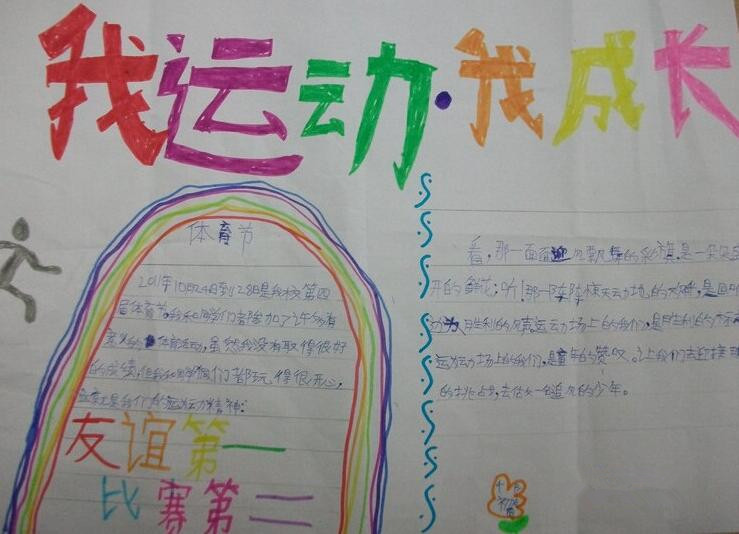 我运动·我成长
体育节
2011年10月24日到28日是我校第四
届体育节,我和同学们都参加了许多有
意义的体育运动,虽然我没有取得很好
的成绩,但我和同学们都玩得很开心,
这就是我们的运动精神:
友谊第一
比赛第二
看,那一面面迎风飘舞的彩旗,是一朵朵
开的鲜花;听!那一阵阵惊天动地的
胜利的 运动场上的我们,是胜利的
运动场上的我们,是童年的赞叹。让我们去迎接
的挑战,去做一追风的少年。